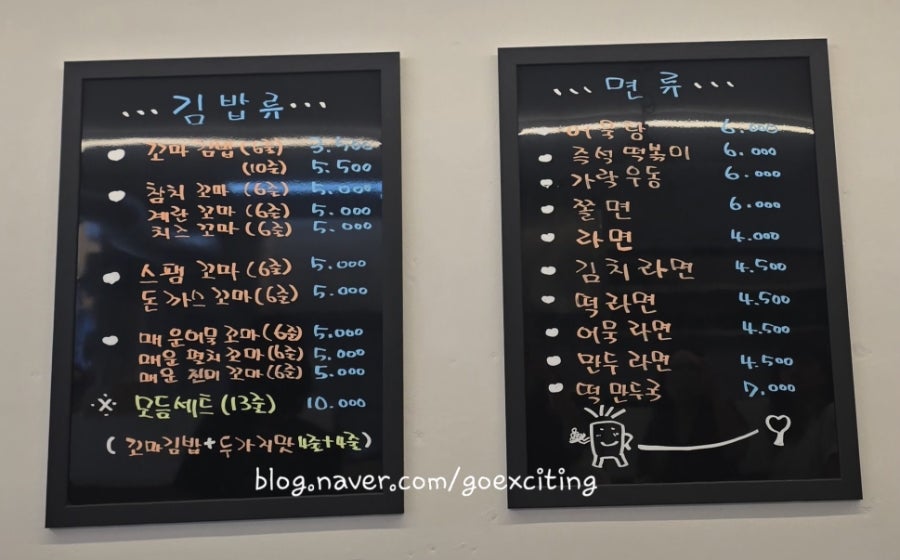 ... 김밥류 ...
꼬마 김밥 (6줄)
(10줄) 5.500
참치 꼬마 (6줄) 5.000
계란 꼬마 (6줄) 5.000
치즈 꼬마 (6줄) 5.000
스팸 꼬마 (6줄) 5.000
돈까스 꼬마 (6줄) 5.000
매운어묵 꼬마 (6줄) 5.000
매운 멸치 꼬마 (6줄) 5.000
매운 진미 꼬마 (6줄) 5.000
※ 모듬세트 (13줄) 10.000
( 꼬마김밥 + 두가지맛 4줄+4줄 )
... 면류 ...
어묵탕 6.000
즉석 떡볶이 6.000
가락우동 6.000
쫄면 6.000
라면 4.000
김치라면 4.500
떡라면 4.500
어묵라면 4.500
만두라면 4.500
떡만두국 7.000
blog.naver.com/goexciting